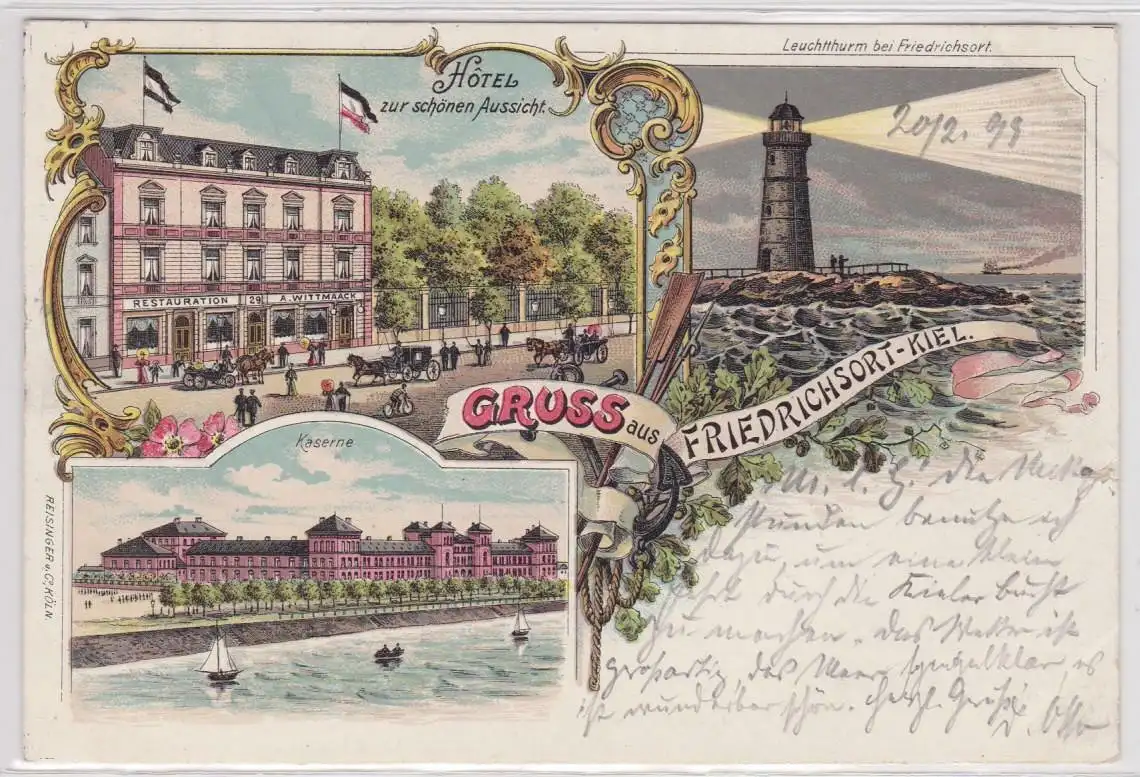 Leuchtthurm bei Friedrichsort.
HÔTEL
zur schönen Aussicht.
20/2. 98
RESTAURATION 29 A. WITTMAACK
GRUSS aus FRIEDRICHSORT-KIEL.
Kaserne
REISINGER u. Co. KÖLN
M. l. die
Stunden benutze ich
dazu, um eine kleine
Fahrt durch die Kieler Bucht
zu machen. Das Wetter ist
großartig, das Meer spiegelklar, es
ist wunderbar schön. Herzl. Grüße
d. Otto